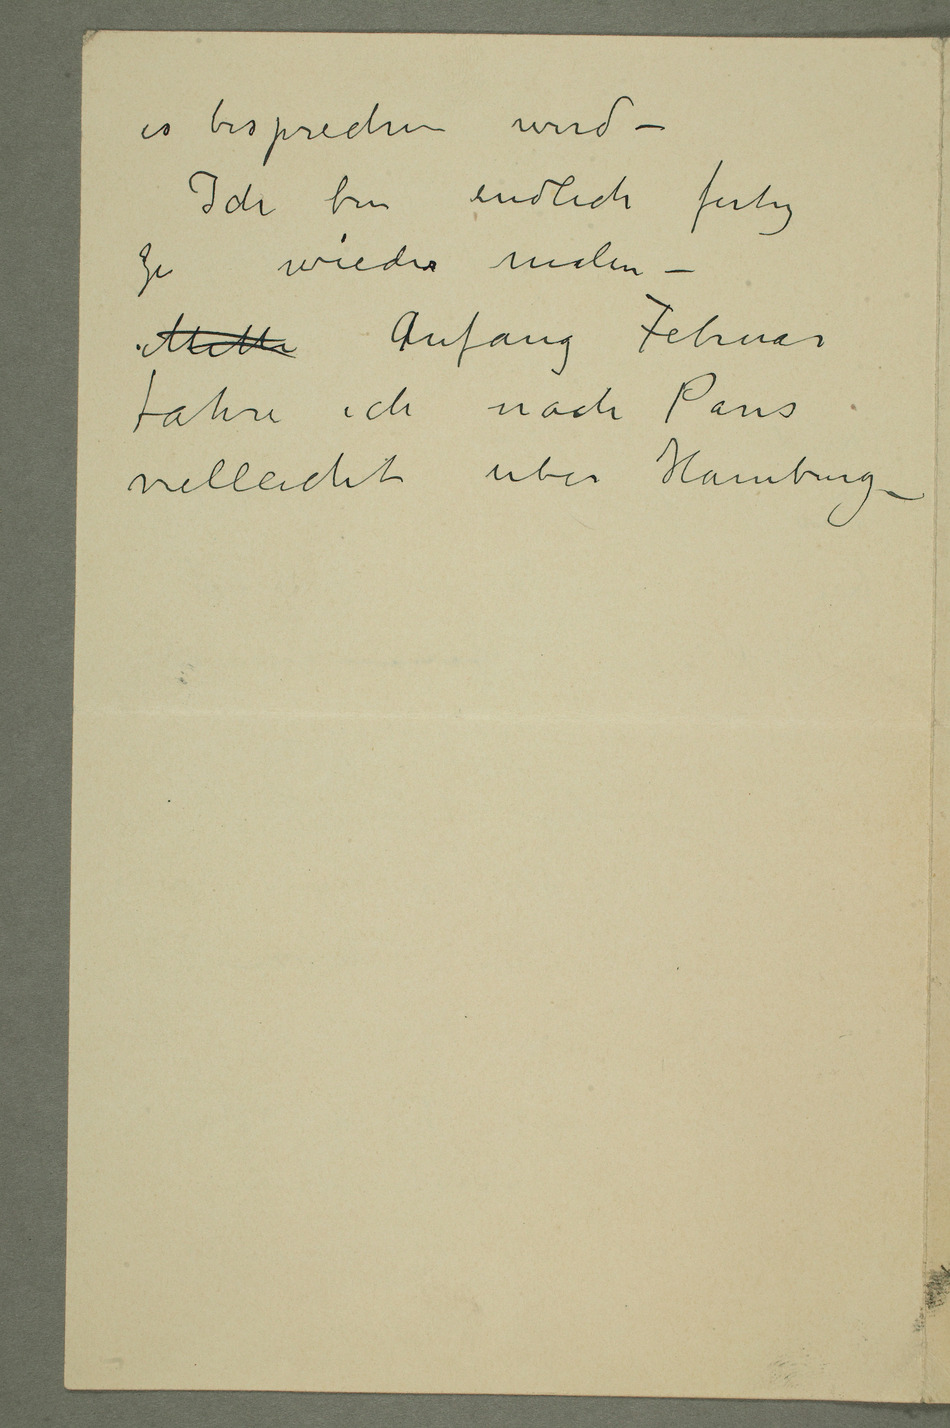 es besprechen wird –
Ich bin endlich fertig
zu wieder malen –
Mitte Anfang Februar
fahre ich nach Paris
vielleicht uber Hamburg –